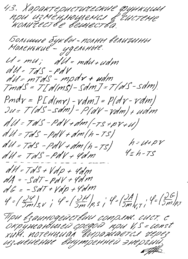 43. Характеристические функции
при изменяющемся в системе
количестве вещества
Большие буквы - полные величины
маленькие - удельные
U = mu; dU = mdu + udm
du = Tds - pdv
dU = mTds - mpdv + udm
Tmds = T[d(ms) - sdm] = T(dS - sdm)
pmdv = P[d(mv) - vdm] = P(dV - vdm)
dU = T(dS - sdm) - P(dV - vdm) + udm
dU = TdS - PdV + dm(-Ts + pv + u)
dU = TdS - PdV + dm(h - Ts) h = u + pv
dU = TdS - PdV + φdm φ = h - Ts
dH = TdS + Vdp + φdm
dA = -SdT - PdV + φdm
dG = -SdT + Vdp + φdm
При взаимодействии сопряж. сист. с
окружающей средой при V,S = const
хим. потенциал выражается через
изменение внутренней энергии